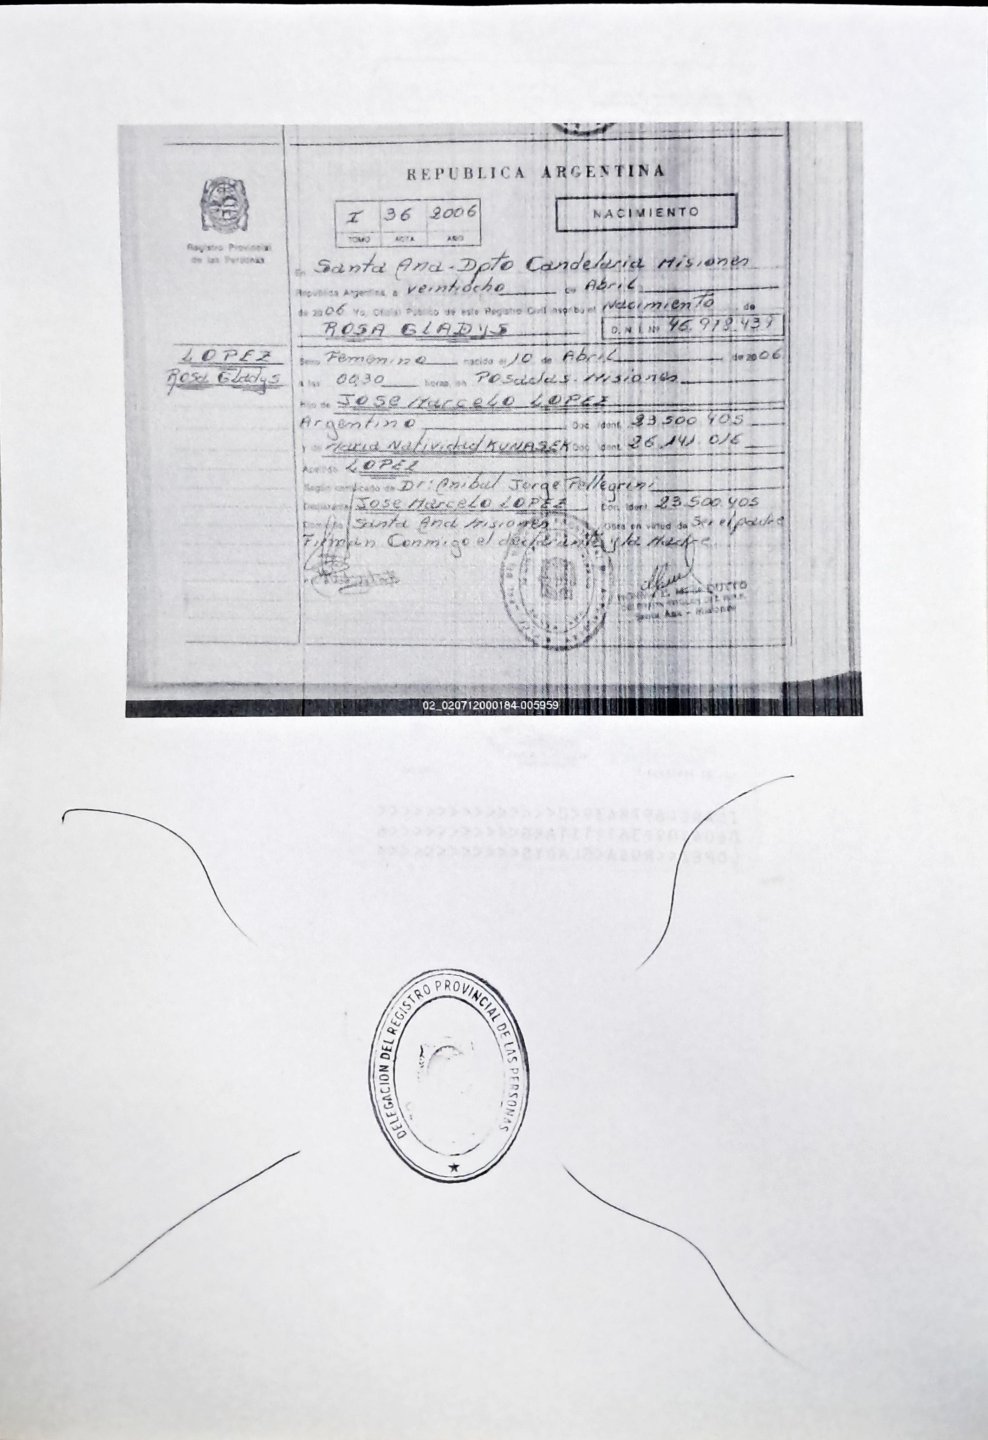 REPUBLICA ARGENTINA
I 36 2006
TOMO ACTA AÑO
NACIMIENTO
Registro Provincial
de las Personas
En Santa Ana-Dpto Candelaria Misiones
República Argentina, a veintiocho de Abril
de 2006 Yo, Oficial Público de este Registro Civil inscribo el Nacimiento de
ROSA GLADYS D.N.I. Nº
LOPEZ
Rosa Gladys
Sexo Femenino nacido el 10 de Abril de 2006
a las 0030 horas, en Posadas-Misiones
Hijo de JOSE Marcelo LOPEZ
Argentino Doc. Ident. 23.500.405
y de Maria Natividad KUNASEK Doc. Ident. 26.141.016
Apellido LOPEZ
Según certificado de Dr: Anibal Jorge Pellegrini
Declarante Jose Marcelo LOPEZ Doc. Ident. 23.500.405
Domicilio Santa Ana Misiones Obra en virtud de Ser el padre
Firman Conmigo el declarante y la Madre
Santa Ana - Misiones
02_020712000184-005959
DELEGACION DEL REGISTRO PROVINCIAL DE LAS PERSONAS